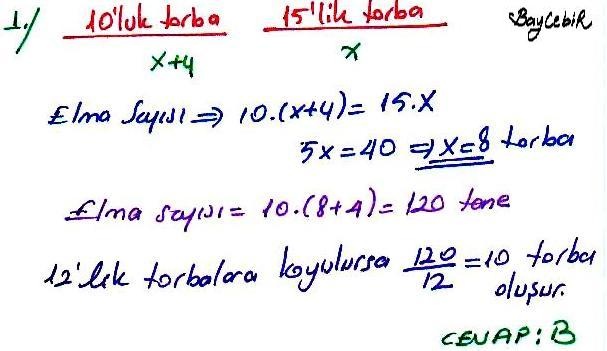 1./ 10'luk torba 15'lik torba BayCebiR
x+4 x
Elma Sayısı ⇒ 10.(x+4) = 15.x
5x = 40 ⇒ x=8 torba
Elma sayısı = 10.(8+4) = 120 tane
12'lik torbalara koyulursa 120/12 = 10 torba
oluşur.
CEVAP: B